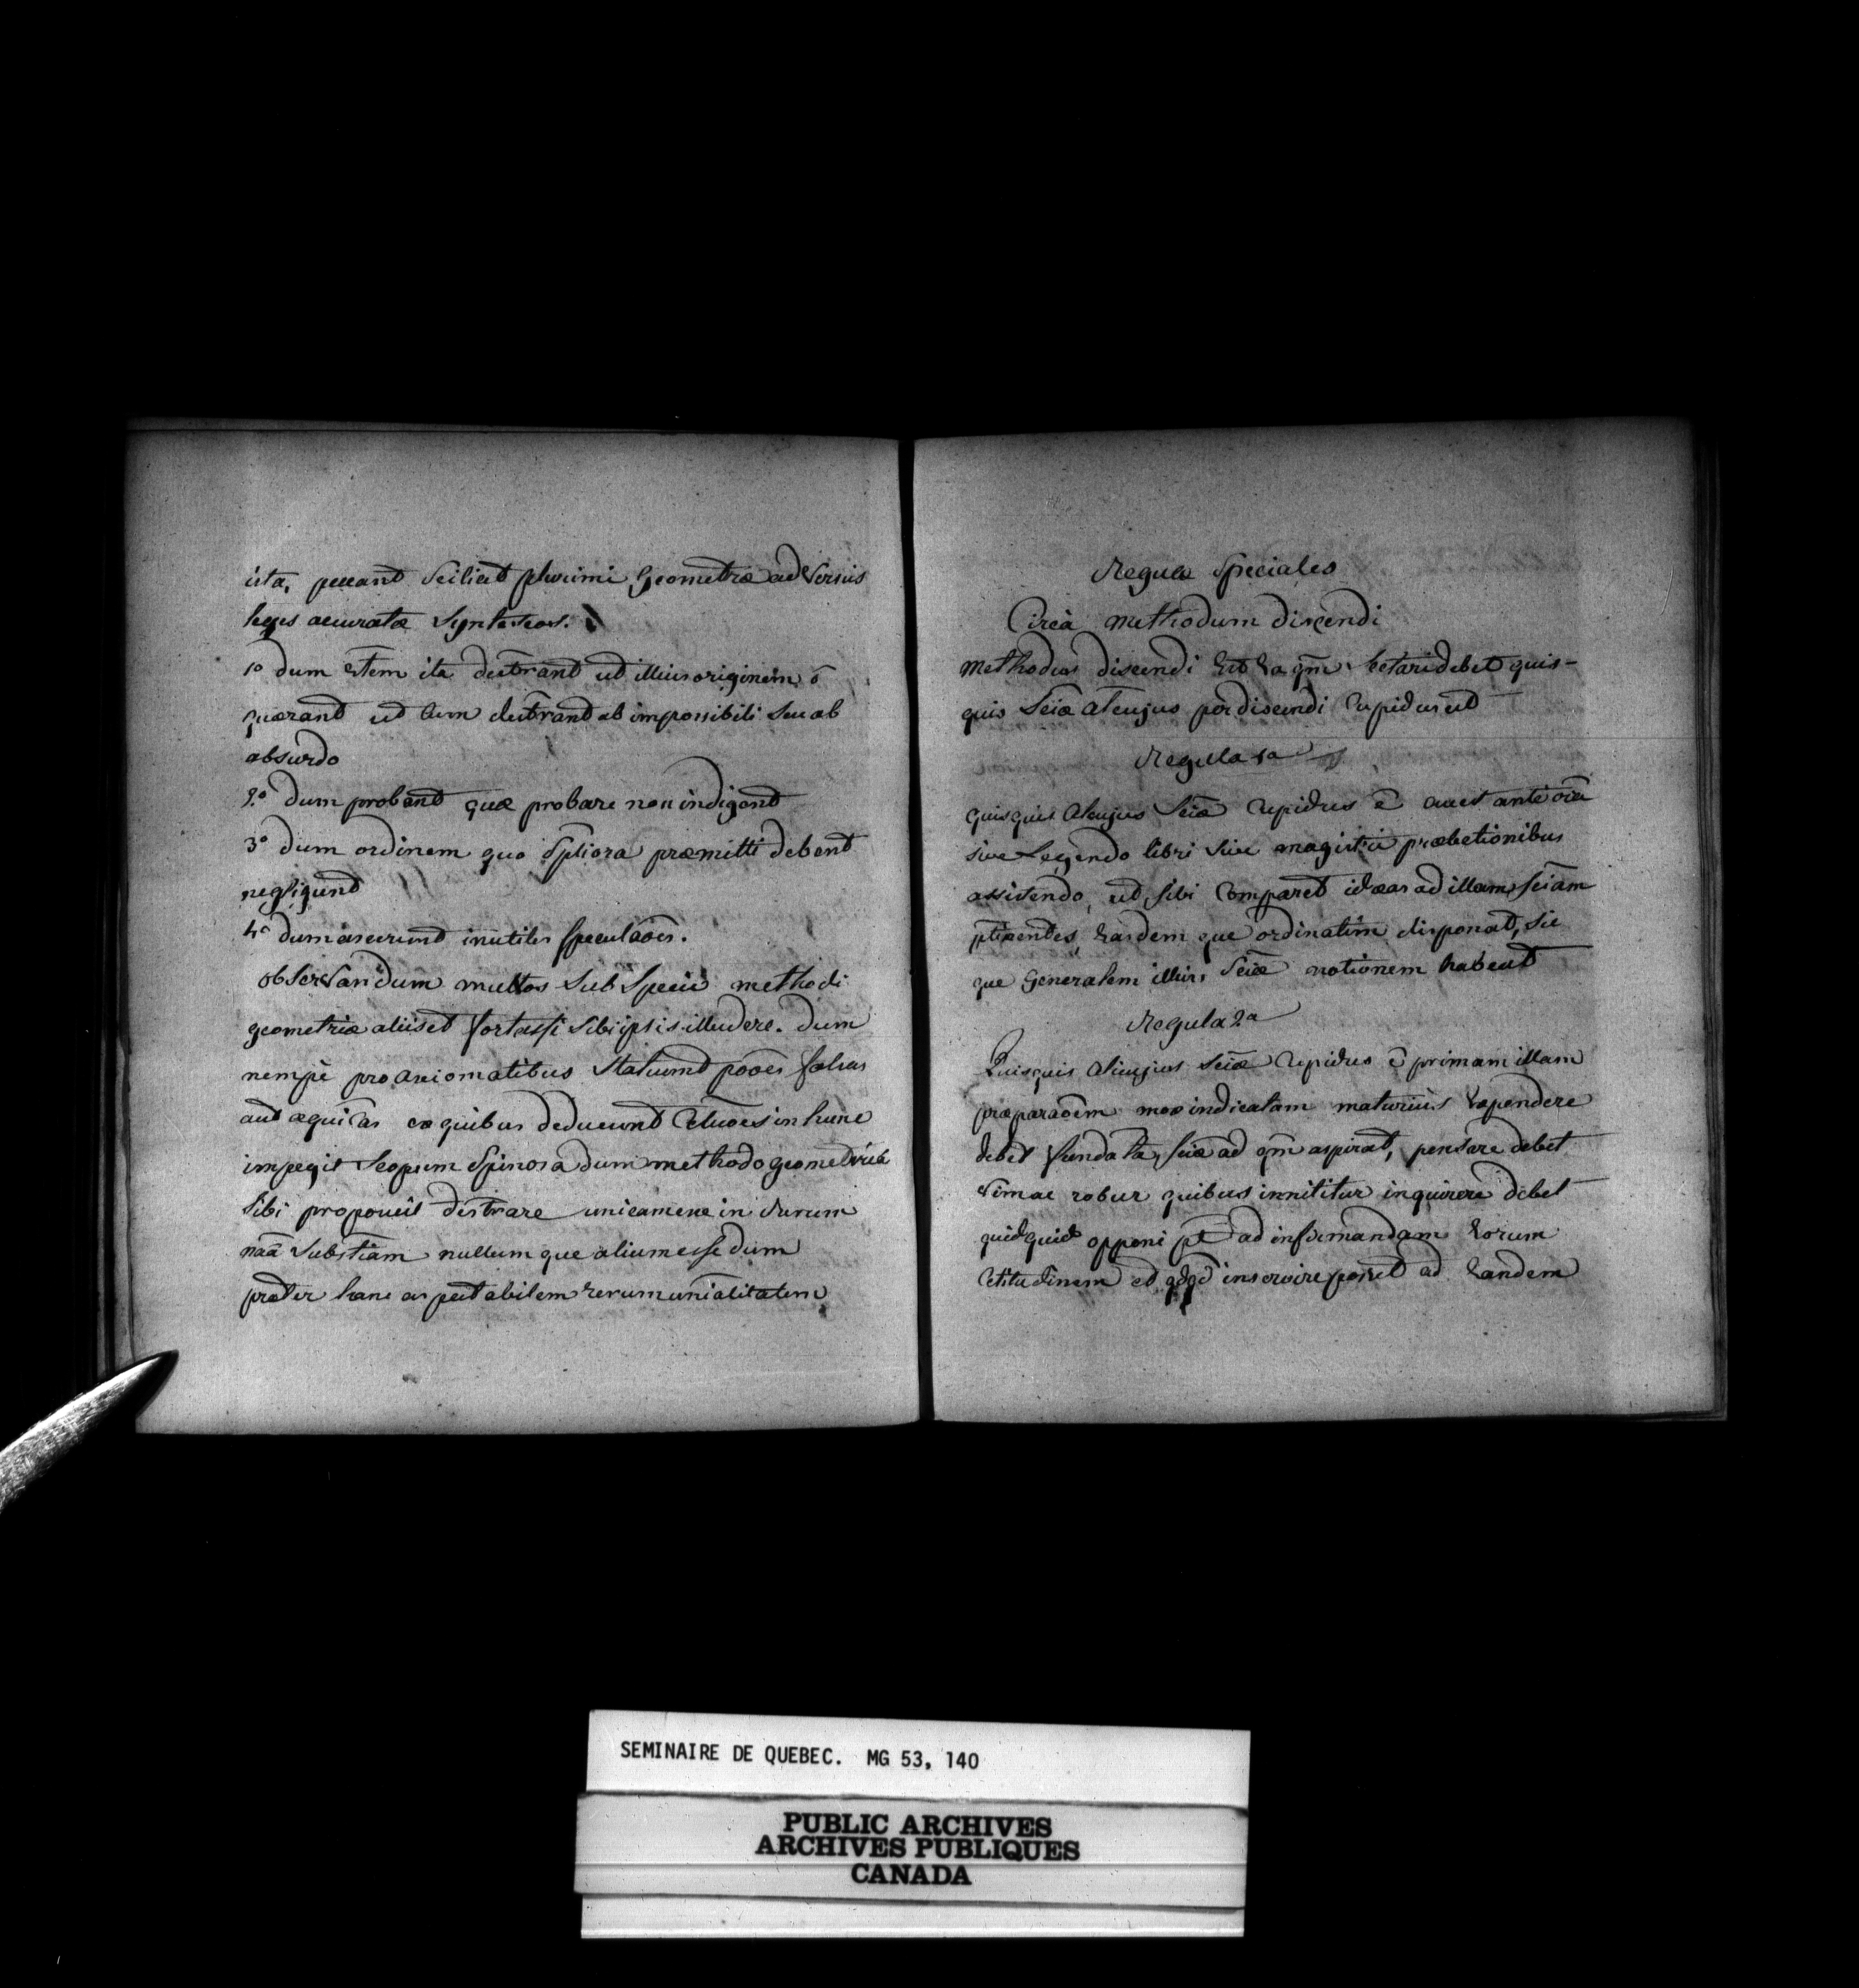 ista, peccant scilicet plurimi geometræ adversus
leges accuratæ synteseos.
1° dum rtem ita destrant ut illius originem ō
quærant ut cum destrant ab impossibili seu ab
absurdo
2° dum probant quæ probare non indigent
3° dum ordinem quo præmitti debent
negligunt
4° dum asserunt inutiles speculaões.
observandum multos sub specie methodi
geometricæ aliis et fortasse sibi ipsis illudere. dum
nempè pro axiomatibus statuunt pões falsas
aut æquicas ex quibus deducunt in hunc
impegit scopum Spinosa dum methodo geometrica
sibi proposuit destrare unicam esse in rerum
naã substiam nullum que alium esse dum
præter hanc aspectabilem rerum unialitatem
Regulæ Speciales
Circà methodum discendi
methodus discendi est ea qm sectari debet quis-
quis sciæ alcujus perdiscendi cupidus est
Regula 1a
quisquis alcujus sciæ cupidus ē curet ante oia
sive legendo libri sive magistri prælectionibus
assidendo, ut sibi comparet idæas ad illam sciam
ptinentes, easdem que ordinatim disponat, sic
que generalem illius sciæ notionem habeat
Regula 2a
Quisquis alicujus sciæ cupidus ē primam illam
præparaõem mox indicatam maturiùs expendere
debet fundata sciæ ad qm aspirat, pensare debet
robur quibus innititur inquirere debet
quidquid opponi pt ad infirmandam eorum
ctitudinem et qdqd inservire posset ad eandem
SEMINAIRE DE QUEBEC. MG 53, 140
PUBLIC ARCHIVES
ARCHIVES PUBLIQUES
CANADA